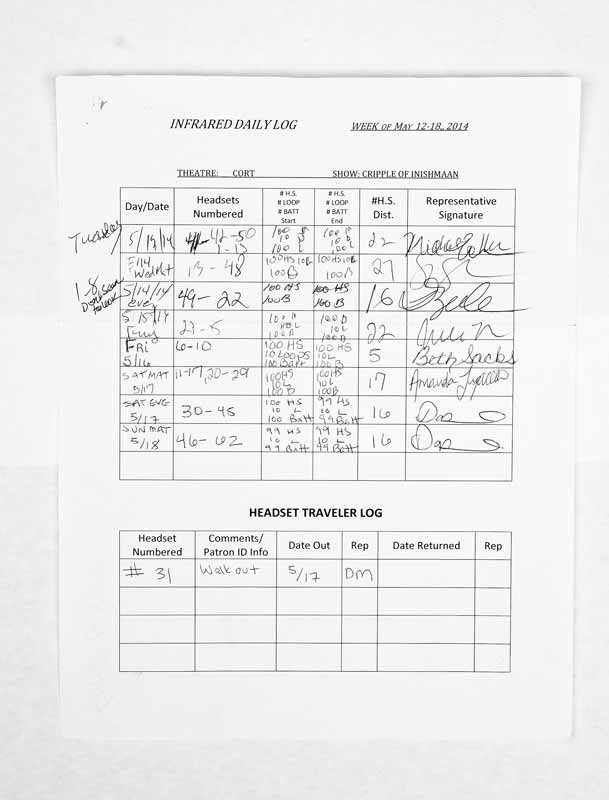 INFRARED DAILY LOG WEEK OF MAY 12-18, 2014
THEATRE: CORT SHOW: CRIPPLE OF INISHMAAN
Day/Date Headsets Numbered # H.S. # LOOP # BATT Start # H.S. # LOOP # BATT End #H.S. Dist. Representative Signature
Tuesday 22
5/14 Walmat 13-48 100 HS 10L 100B 100HS 10L 100B 27
1-8
5/14/14 eve 49-22 100 HS 100B 100 HS 100 B 16
22
FRI 5/16 6-10 100 HS 10 LOOPS 100 Batt 100 HS 10L 100 BATT 5 Beth Sacks
SAT MAT 5/17 11-17, 20-29 100HS 10L 100B 100 HS 10L 100B 17 Amanda
SAT EVE 5/17 30-45 100 HS 10 L 100 Batt 99 HS 10 L 99 Batt 16
SUN MAT 5/18 46-62 99 HS 10 L 99 Batt 99 HS 10 L 99 Batt 16
HEADSET TRAVELER LOG
Headset Numbered Comments/ Patron ID Info Date Out Rep Date Returned Rep
# 31 Walk out 5/17 DM